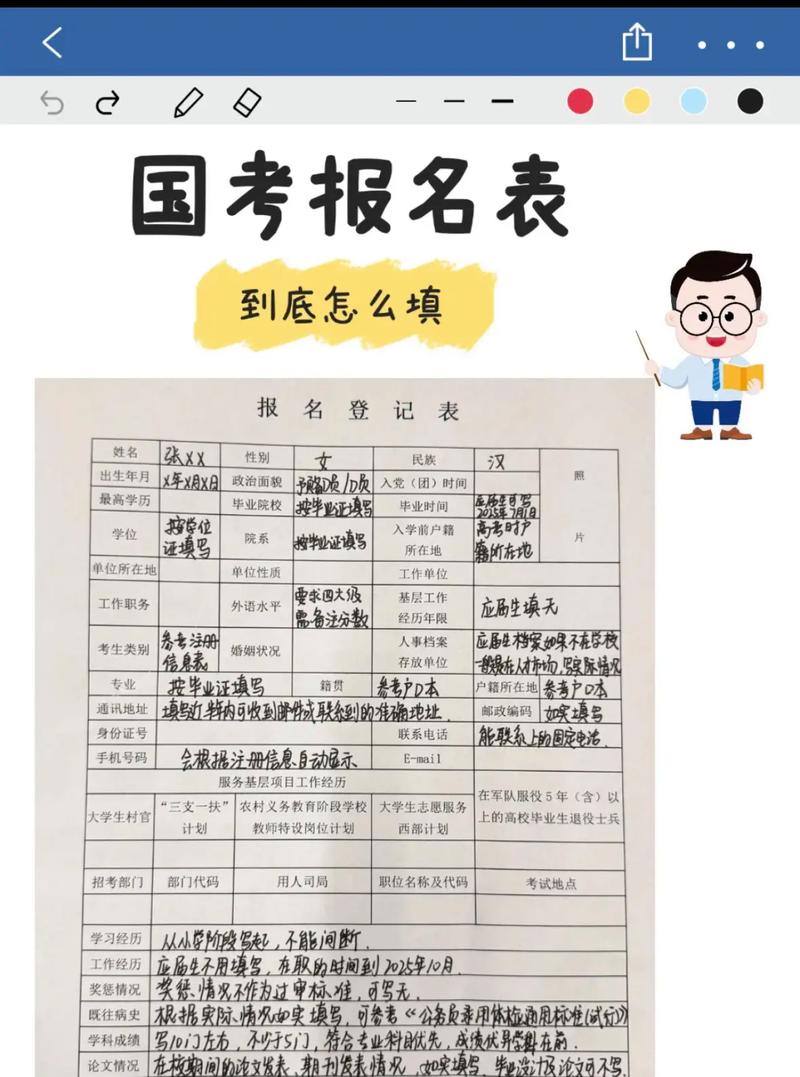 国考报名表
到底怎么填
报名登记表
姓名 张XX 性别 女 民族 汉 照片
出生年月 X年X月X日 政治面貌 预备D员/D员 入党（团）时间
最高学历 毕业院校 按毕业证填写 毕业时间 应届生可写2025年7月1日
学位 按学位证填写 院系 按毕业证填写 入学前户籍所在地 高考时户籍所在地
单位所在地 单位性质 工作单位
工作职务 外语水平 要求四六级需备注分数 基层工作经历年限 应届生填无
考生类别 参考注册信息表 婚姻状况 人事档案存放单位 应届生档案如果不在学校一般是在人才市场，写实际情况
专业 按毕业证填写 籍贯 参考户口本 户籍所在地 参考户口本
通讯地址 填写近半年内可收到邮件或联系到的准确地址. 邮政编码 如实填写
身份证号 联系电话 能联系上的固定电话.
手机号码 会根据注册信息自动显示 E-mail
服务基层项目工作经历
大学生村官 “三支一扶”计划 农村义务教育阶段学校教师特设岗位计划 大学生志愿服务西部计划 在军队服役5年（含）以上的高校毕业生退役士兵
招考部门 部门代码 用人司局 职位名称及代码 考试地点
学习经历 从小学阶段写起，不能间断.
工作经历 应届生不用填写，在职的时间到2025年10月.
奖惩情况 奖惩情况不作为过审标准，可写无.
既往病史 根据实际情况如实填写，可参考《公务员录用体检通用标准(试行)》
学科成绩 写10门左右，不少于5门，符合专业科目优先，成绩优异学科在前.
论文情况 在校期间的论文发表、期刊发表情况，如实填写，毕业设计及论文可不写.